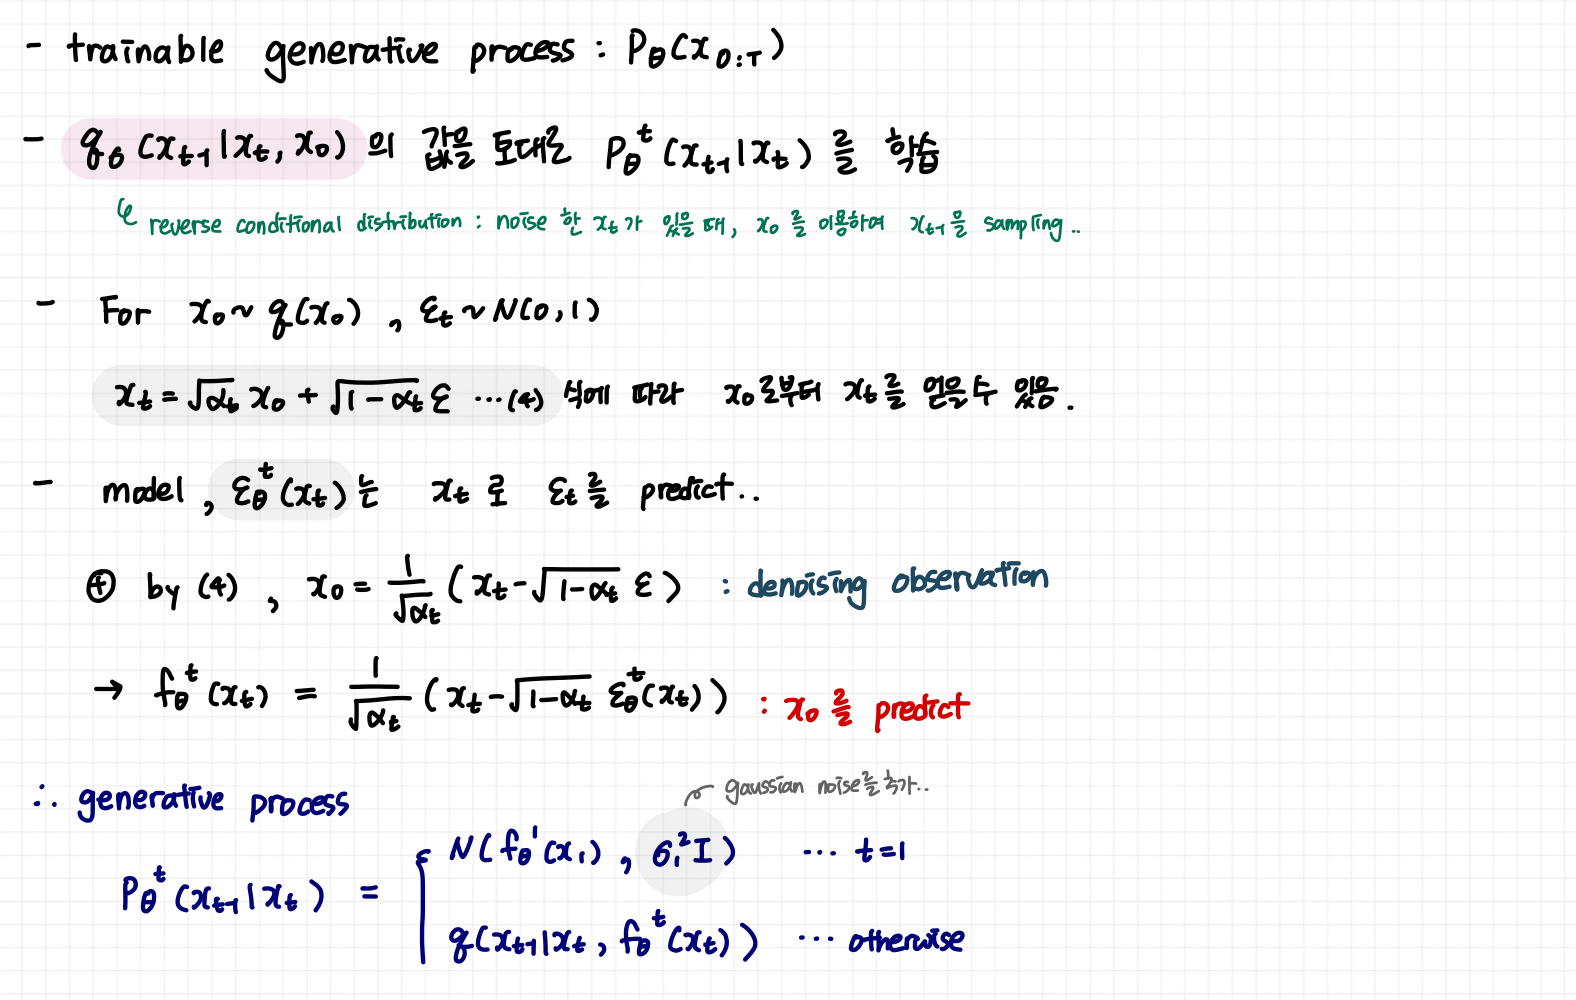 - trainable generative process : P_θ(x_{0:T})
- q_σ(x_{t-1}|x_t, x_0) 의 값을 토대로 P_θ^t(x_{t-1}|x_t) 를 학습
↳ reverse conditional distribution : noise 한 x_t 가 있을 때, x_0 를 이용하여 x_{t-1}을 sampling..
- For x_0 ~ q(x_0) , ε_t ~ N(0,1)
x_t = √α_t x_0 + √(1-α_t) ε ...(4) 식에 따라 x_0로부터 x_t를 얻을 수 있음.
- model , ε_θ^t(x_t) 는 x_t 로 ε_t 를 predict..
⊕ by (4) , x_0 = 1/√α_t (x_t - √(1-α_t) ε) : denoising observation
→ f_θ^t(x_t) = 1/√α_t (x_t - √(1-α_t) ε_θ^t(x_t)) : x_0 를 predict
∴ generative process
gaussian noise를 추가..
P_θ^t(x_{t-1}|x_t) = { N(f_θ^1(x_1) , σ_1^2 I) ... t=1
q(x_{t-1}|x_t , f_θ^t(x_t)) ... otherwise